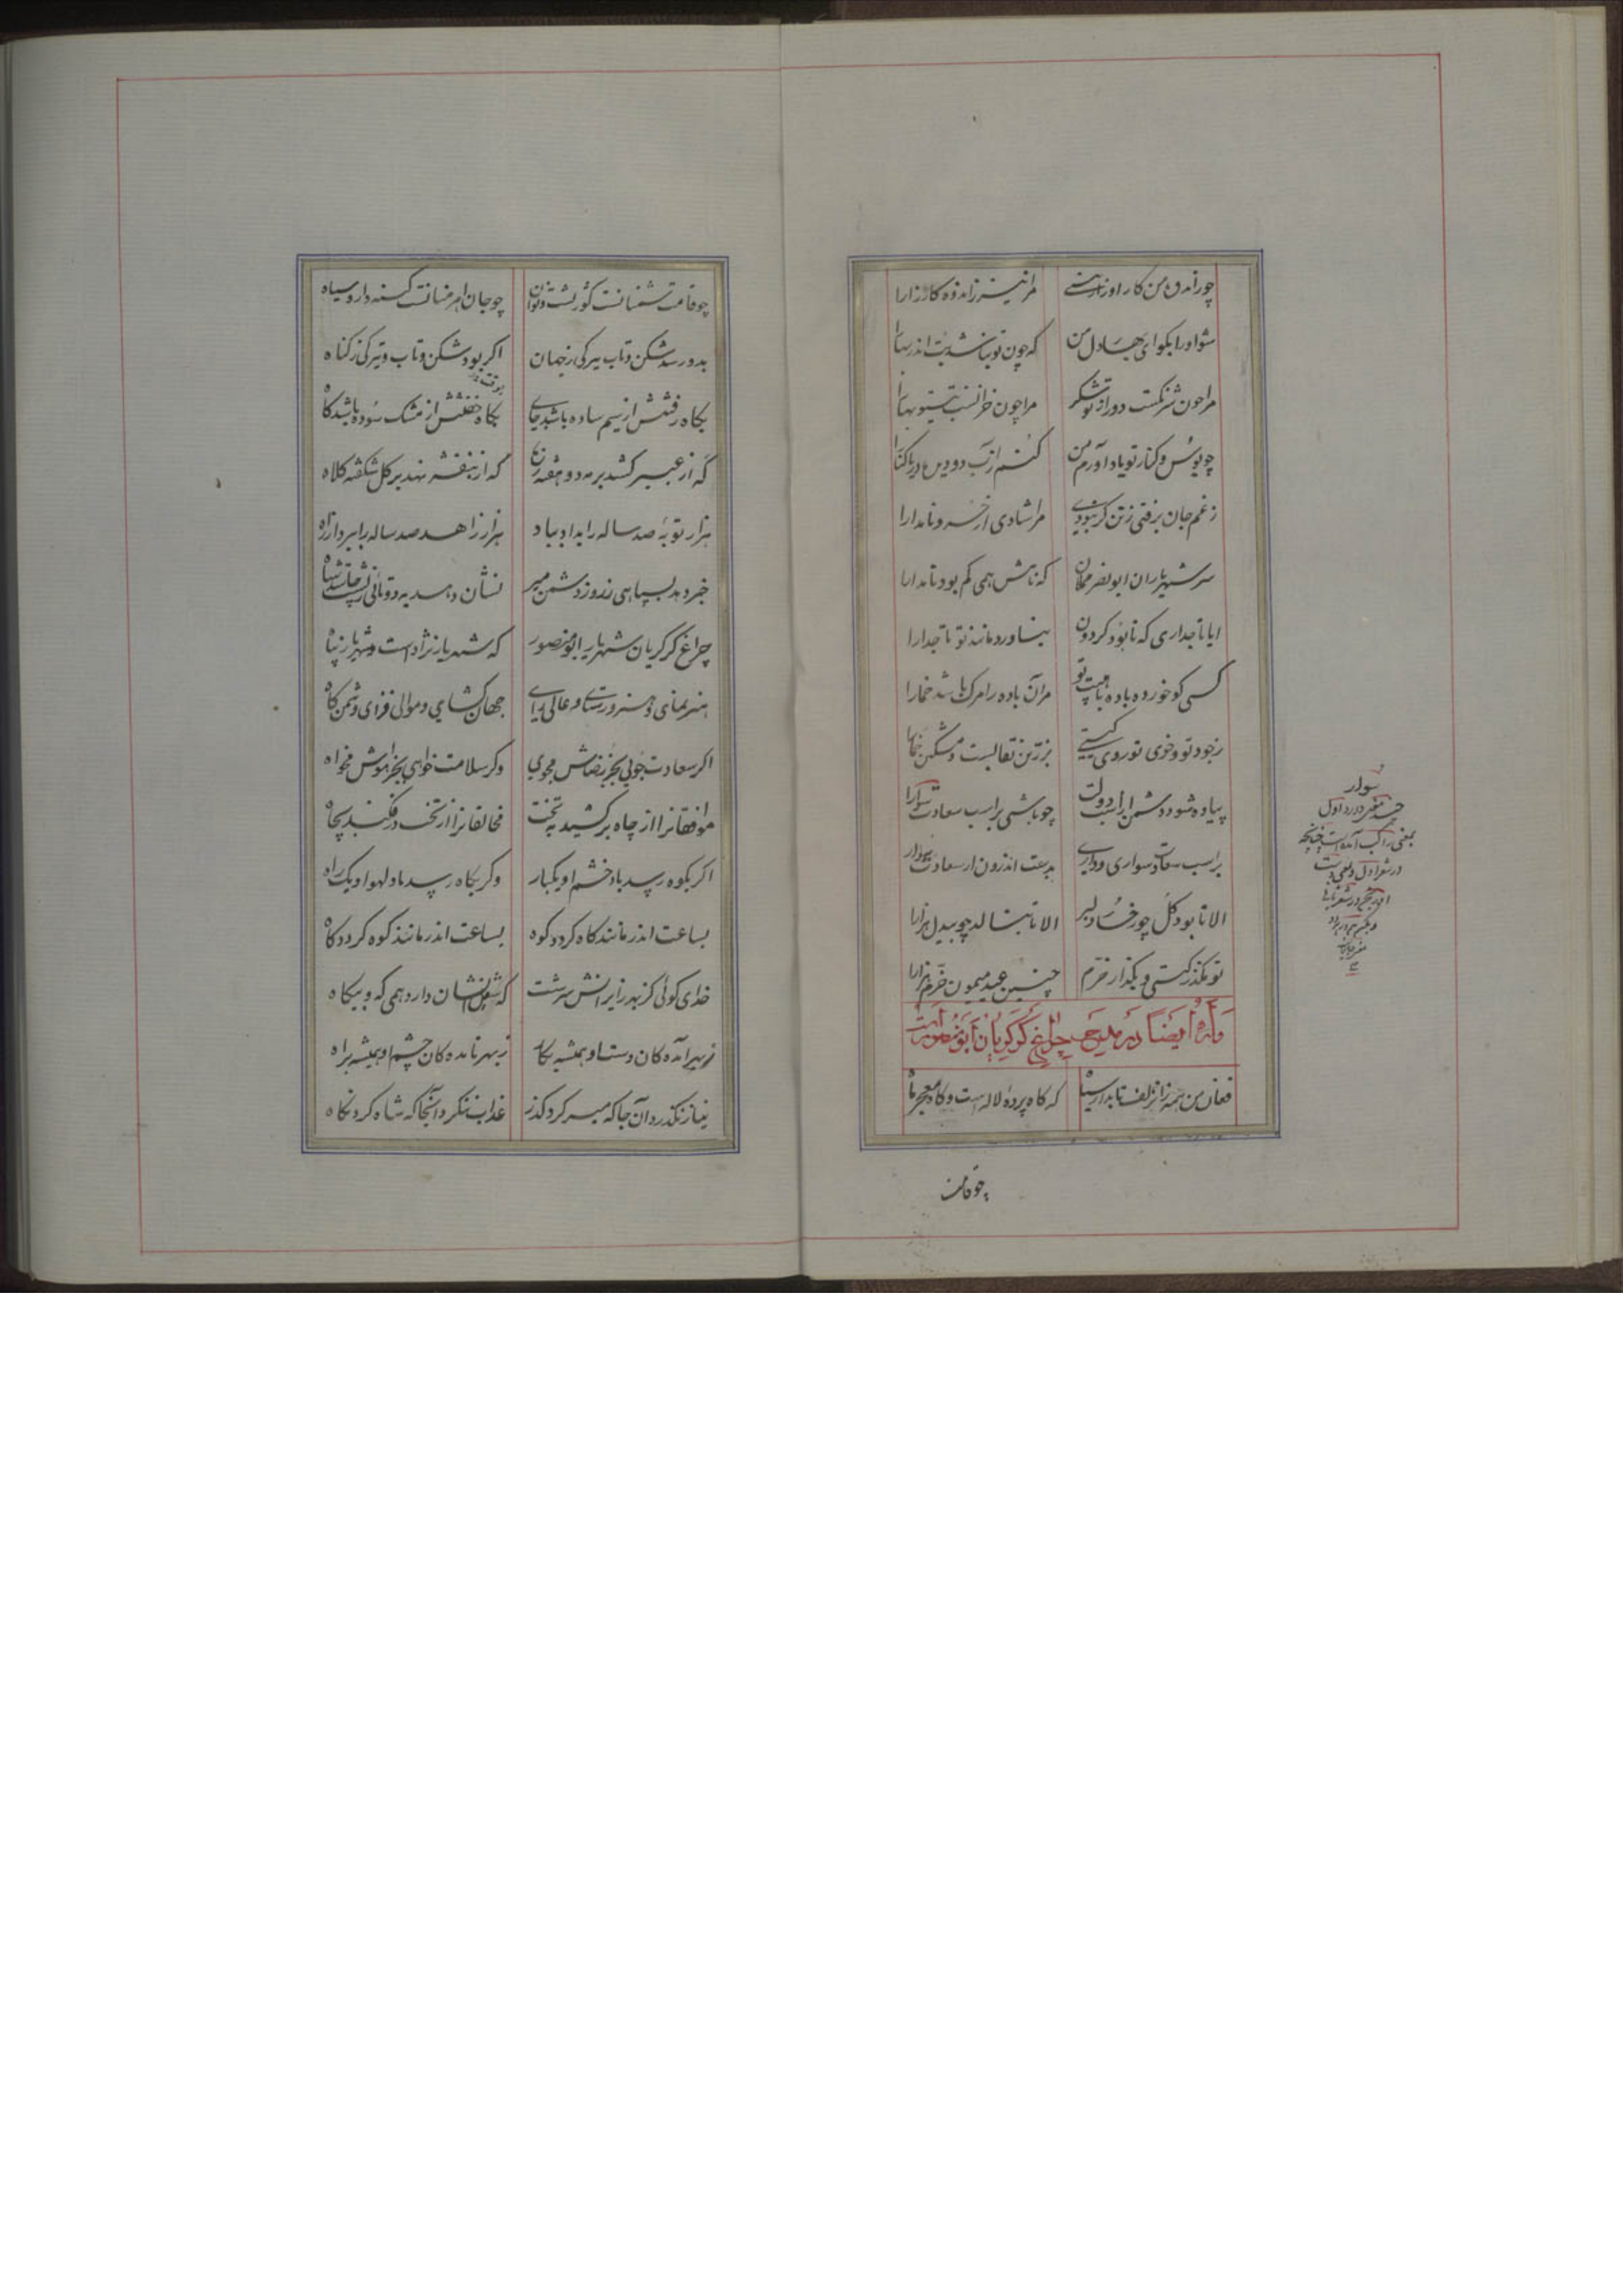 چو راند من کار او
مرا نیز زاندوه کارزارا
شو او را بکو ای بهار دل من
که چون تو نباشد بت اندر بهارا
مرا چون شرنکست دور از تو شکر
مرا چون خزانست بیتو بهارا
چو بوس و کنار تو یاد آورم من
کنم از آب دو دیده دریا کنارا
ز غم جان برفتی ز تن کر نبودی
مرا شادی از خسرو نامدارا
سر شهریاران ابونصر مملان
که تاش همی کم بود نامدارا
ایا تاجداری که تا بود کردون
نیاورد مانند تو تاجدارا
کسی کو خورد باده با هیبت تو
مر آن باده را مرک باشد خمارا
ز جود تو و خوی تو روی کیتی
پر زرین نقابست و مشکین خمارا
پیاده شود دشمن از اسب دولت
چو باشی بر اسب سعادت سوارا
بر اسب سعادت سواری و داری
بدست اندرون از سعادت سوارا
الا تا بود کل چو رخسار دلبر
الا تا بنالد چو بیدل هزارا
تو مکذر ز کیتی و بکذار خرم
چنین عید میمون خرم هزارا
وله ایضاً در مدیح چراغ کرکریان ابو منصور است
فغان من همه زان زلف تابدار سیاه
که کاه پرده لاله است و کاه معجر ماه
چو قامت
سوار
بمعنی راکب آمده است چنانچه
در شعر اول
چو قامت شمنانست کوژ پشت و نوان
چو جان اهرمنانست کینه دار و سیاه
بدو رسد شکن و تاب و تیرکی ز جهان
اکر بود شکن و تاب و تیرکی ز کناه
بکاه رفتنش از سیم ساده باشد جای
بکاه خفتنش از مشک سوده باشد کاه
که از عبیر کشد بر مه دو هفته زره
که از بنفشه نهد بر کل شکفته کلاه
هزار توبه صد ساله را بداد بباد
هزار زاهد صد ساله را ببرد از راه
خبر دهد بسیاهی ز روز دشمن میر
نشان دهد به دوتائی ز پشت حاسد شاه
چراغ کرکریان شهریار ابو منصور
که شهریار نژاد است و شهریار پناه
هنر نمای و هنر ورستای و عالی رای
جهان کشای و موالی فزای و دشمن کاه
اکر سعادت جوئی بجز رضاش مجوی
و کر سلامت خواهی بجز هواش مخواه
موافقانرا از چاه برکشید به تخت
مخالفانرا از تخت درفکند بچاه
اکر بکوه رسد باد خشم او یکبار
و کر بکاه رسد باد لهو او یک راه
بساعت اندر مانند کاه کردد کوه
بساعت اندر مانند کوه کردد کاه
خدای کوئی کز بهر زایرانش سرشت
که شغل ایشان دارد همی که و بیکاه
ز بهر آمده کان دست او همیشه بکار
ز بهر نامده کان چشم او همیشه براه
نیاز نکذرد آن جا که میر کرد کذر
عذاب ننکرد آنجا که شاه کرد نکاه